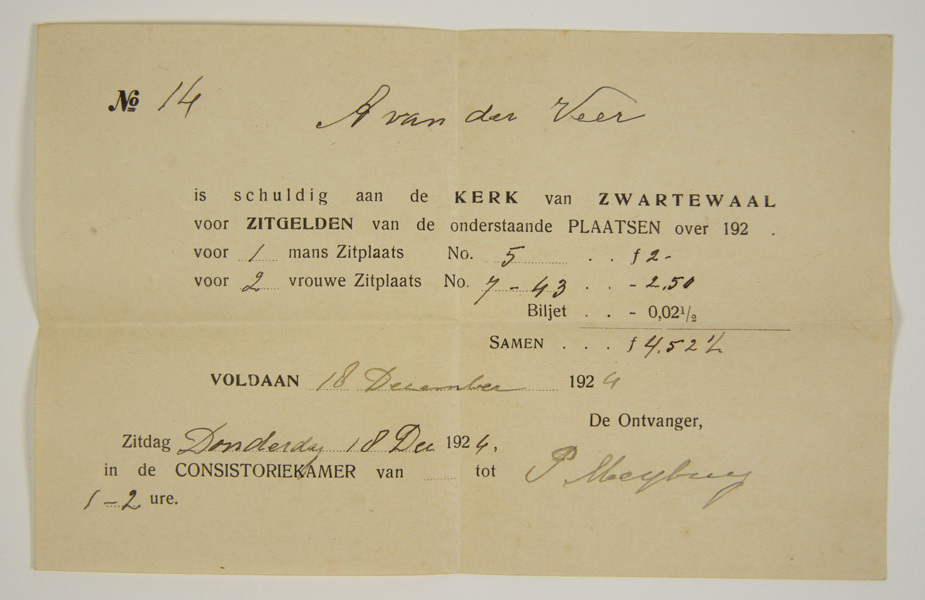 № 14
A van der Veer
is schuldig aan de KERK van ZWARTEWAAL
voor ZITGELDEN van de onderstaande PLAATSEN over 192 .
voor 1 mans Zitplaats No. 5 . . f 2 -
voor 2 vrouwe Zitplaats No. 7 - 43 . . - 2,50
Biljet . . - 0,02½
SAMEN . . . f 4.52 ½
VOLDAAN 18 December 1924
De Ontvanger,
Zitdag Donderdag 18 Dec 1924,
in de CONSISTORIEKAMER van tot
1 - 2 ure.
P Meyburg